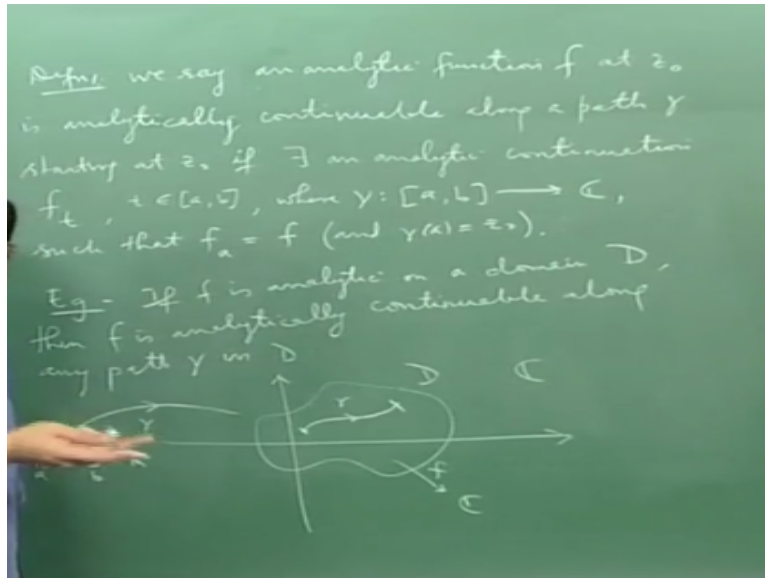 Defn: we say an analytic function f at z₀
is analytically continuable along a path γ
starting at z₀ if ∃ an analytic continuation
f_t , t ∈ [a, b] , where γ: [a, b] ⟶ ℂ,
such that f_a = f (and γ(a) = z₀).
Eg:- If f is analytic on a domain D,
then f is analytically continuable along
any path γ in D
D ℂ
γ γ
a b
f
ℂ